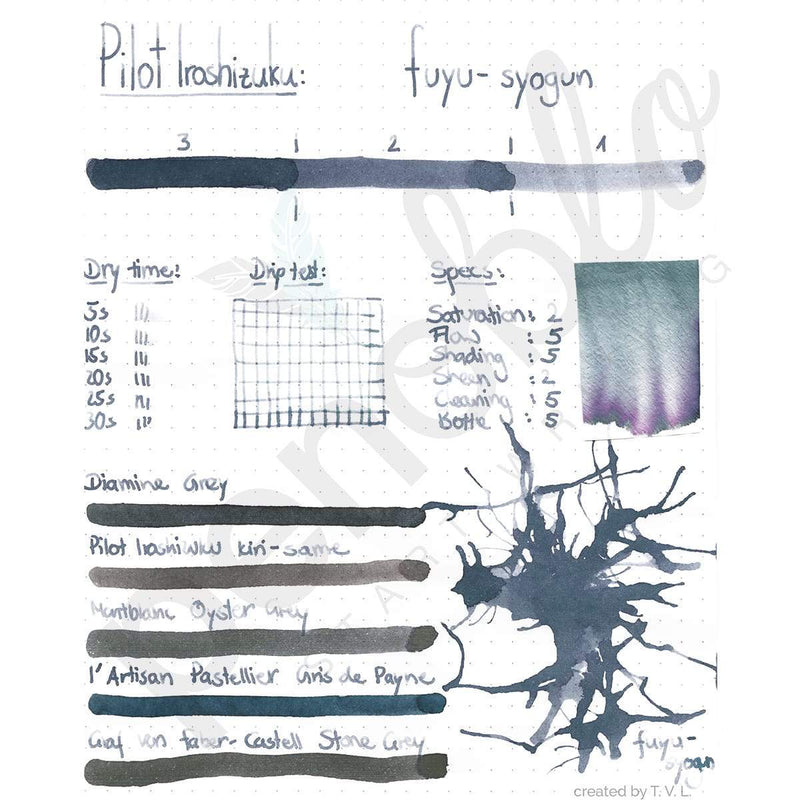 Pilot Iroshizuku: fuyu-syogun
3 2 1
Dry time: Drip test: Specs:
5s Saturation: 2
10s Flow : 5
15s Shading : 5
20s Sheen : 2
25s Cleaning : 5
30s Bottle : 5
Diamine Grey
Pilot Iroshizuku Kiri-same
Montblanc Oyster Grey
l'Artisan Pastellier Gris de Payne
Graf von Faber-Castell Stone Grey
fuyu-
syogun
penoblo
START WRITING
created by T. V. L.